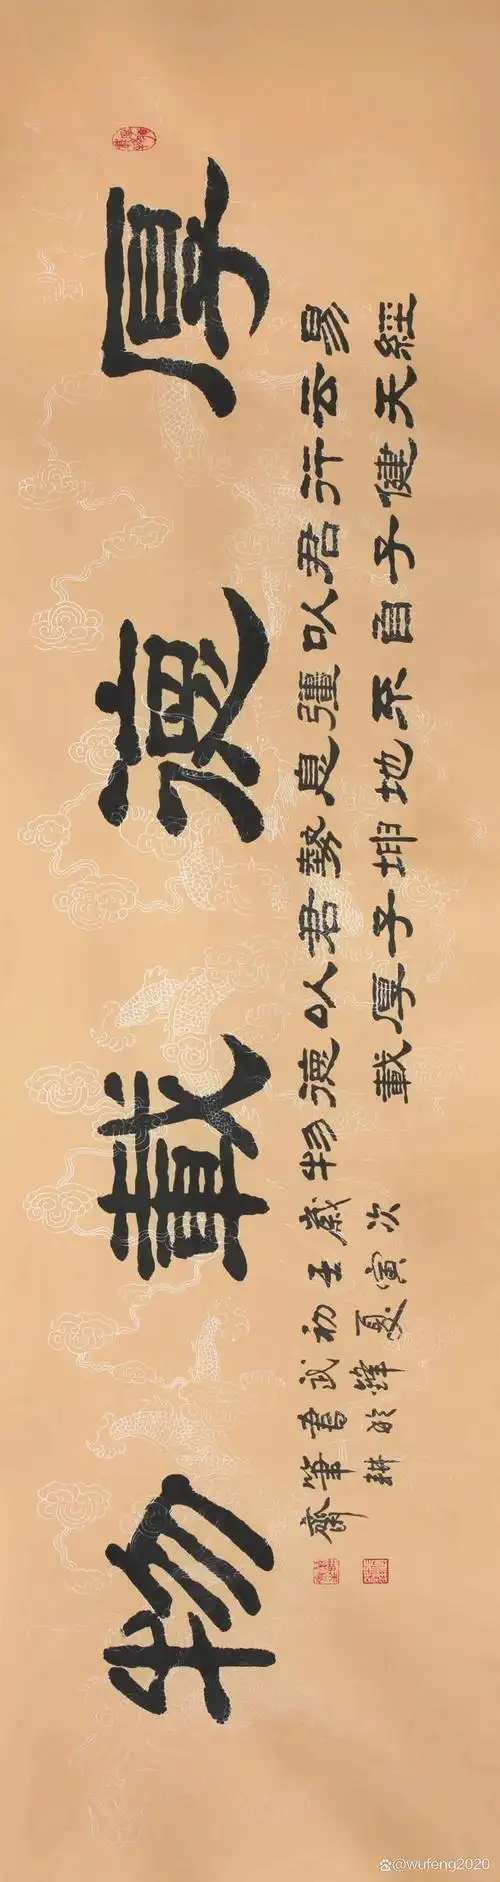 厚德載物
易經
云天
行健
君子
以自
彊不
息地
勢坤
君子
以厚
德載
物
歲次
壬寅
初夏
武鋒
書於
筆耕
齋
@wufeng2020